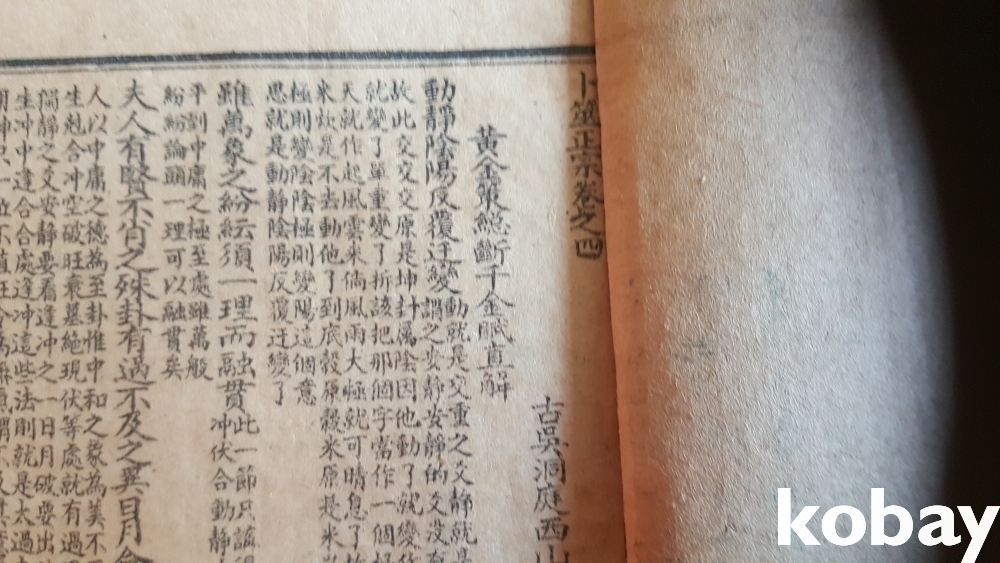 卜筮正宗卷之四
古吳洞庭西山
黃金策總斷千金賦直解
動靜陰陽反覆迁變
動就是交重之爻靜就是
謂之安靜安靜的爻沒有
故此交交交原是坤卦属陰因他動了就變作
就變了單重變了折該把那個字當作一個
天就作起風雲来倘風雨大極就可晴息了故
米炊是不去動他了到底穀原穀米原是米
極則變陰陰極則變陽這個意
思就是動靜陰陽反覆迁變了
雖萬象之紛紜須一理而融貫
此一節只論
冲伏合動靜
平到中庸之極至處雖萬般
紛紛論頭一理可以融貫矣
夫人有賢不肖之殊卦有過不及之異日月
人以中庸之德為至卦惟中和之象為美不
生尅合冲空破旺衰墓絕現伏等處就有過
獨靜之爻安靜要看逢冲之一日月破要出
生冲冲逢合合處逢冲這些法則就是太過
kobay